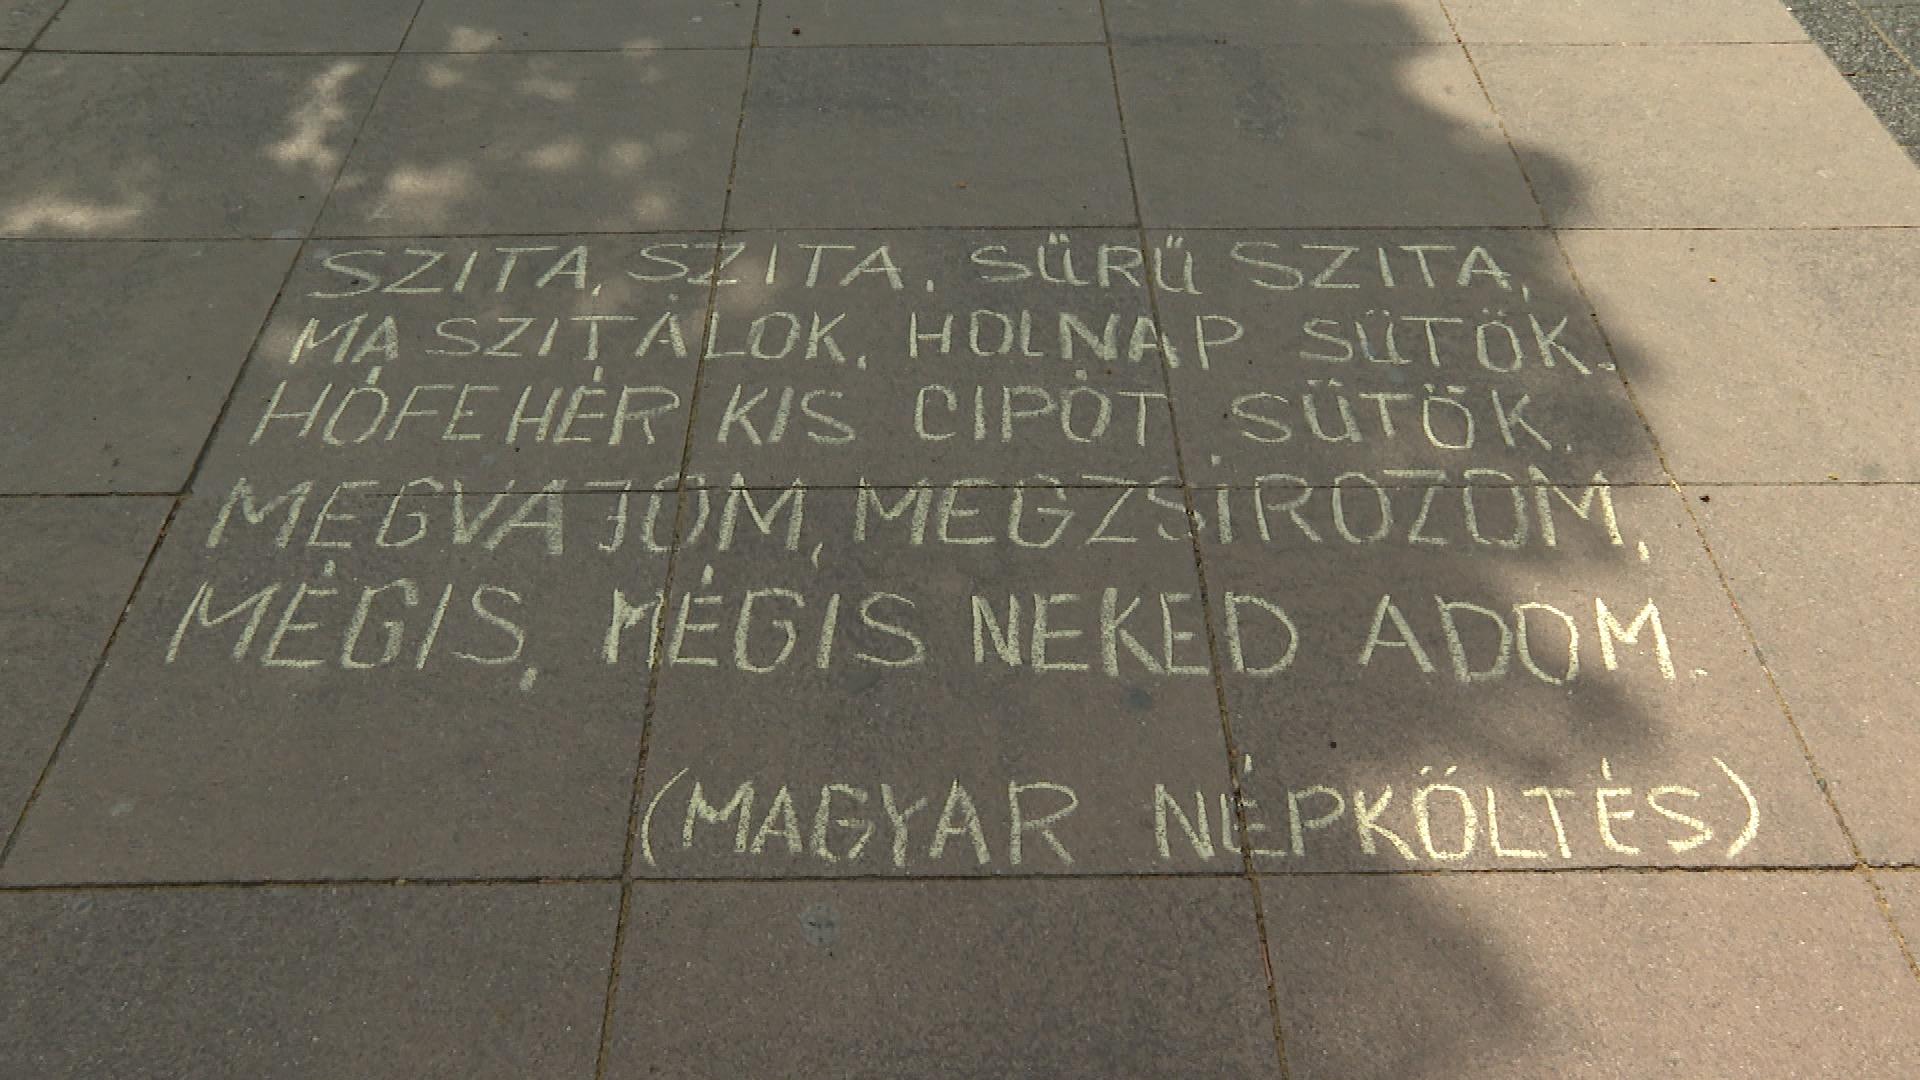 SZITA, SZITA, SŰRŰ SZITA,
MA SZITÁLOK, HOLNAP SÜTÖK.
HÓFEHÉR KIS CIPÓT SÜTÖK.
MEGVAJOM, MEGZSÍROZOM,
MÉGIS, MÉGIS NEKED ADOM.
(MAGYAR NÉPKÖLTÉS)